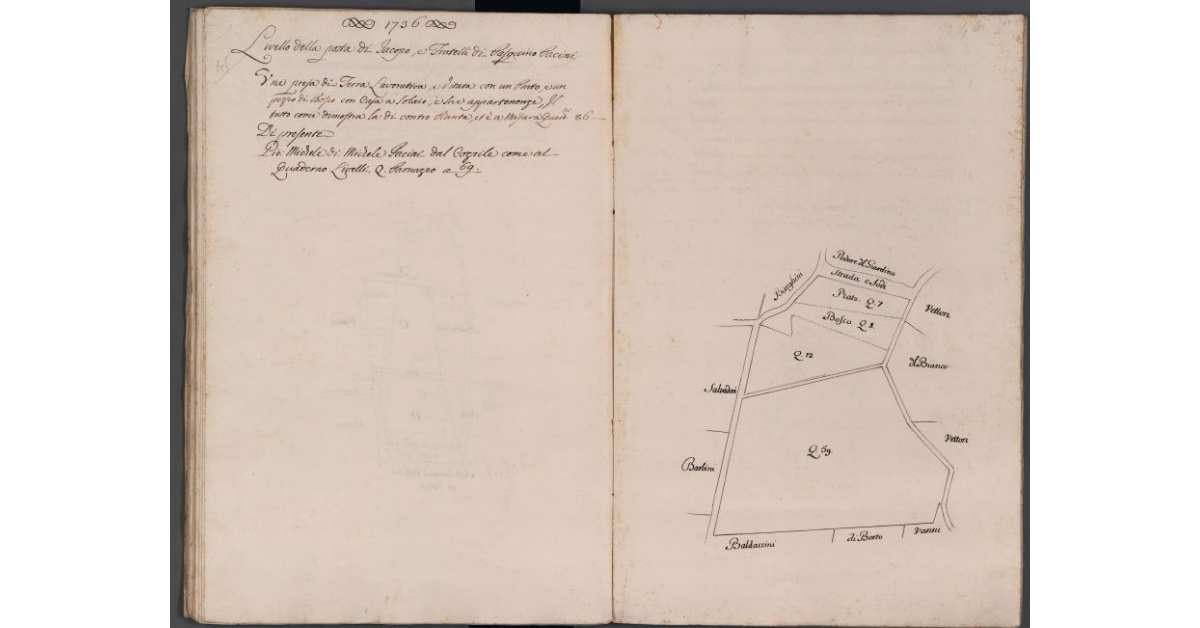 1736
Livello della posta di Jacopo, e Fratelli di Pasquino Pacini
Una presa di Terra Lavorativa, e Vitata con un Prato, e un
pezzo di Bosco con Casa a Solaio, e sue appartenenze, Il
tutto come dimostra la di contro Pianta, et è a Misura Quar.ⁱ 86
Di presente
Pio: Michele di Michele Pacini dal Cozzile come al
Quaderno Livelli Q. a 69
Podere il Giardino
Strada e Sodi
Banchini
Prato Q 7
Vettori
Bosco Q 8
Q 12
Il Bianco
Salvadori
Vettori
Q 59
Barbini
Baldaccini
di Berto
Vanni